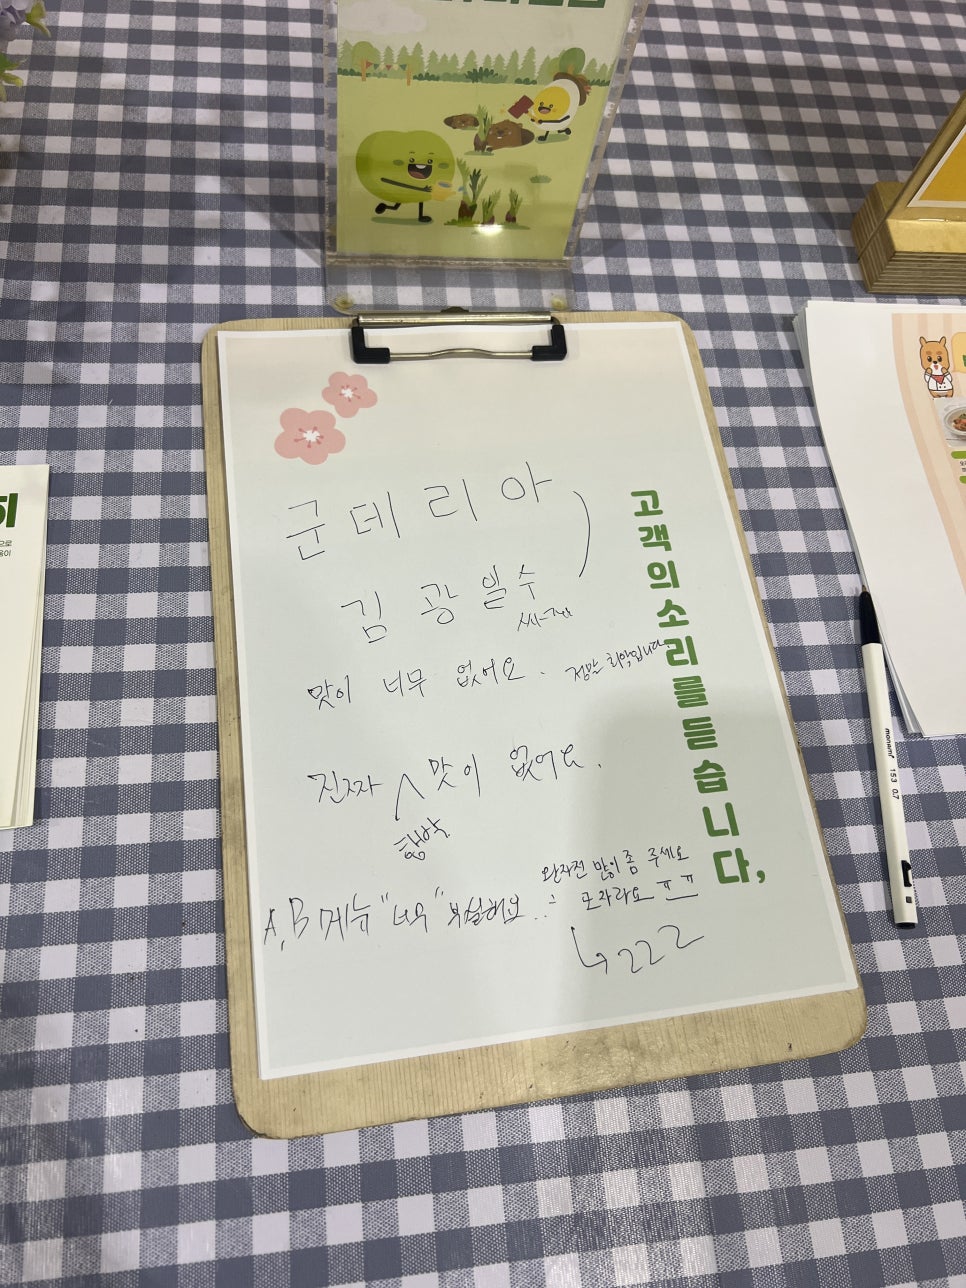 고객의 소리를 듣습니다,
군데리아
김광일수
맛이 너무 없어요. 정말 최악입니다.
진짜 맛이 없어요.
협박
A, B 메뉴 "너무" 부실해요..
완자전 많이 좀 주세요
모자라요 ㅠㅠ
↳ 222
monami 153 0.7